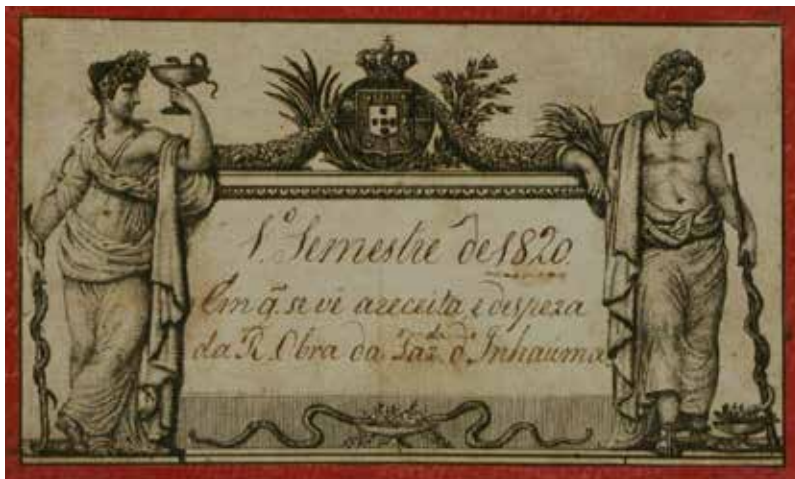 1.º Semestre de 1820.
Em q̃ se vê a receita e despeza
da R. Obra da Faz.da de Inhaúma